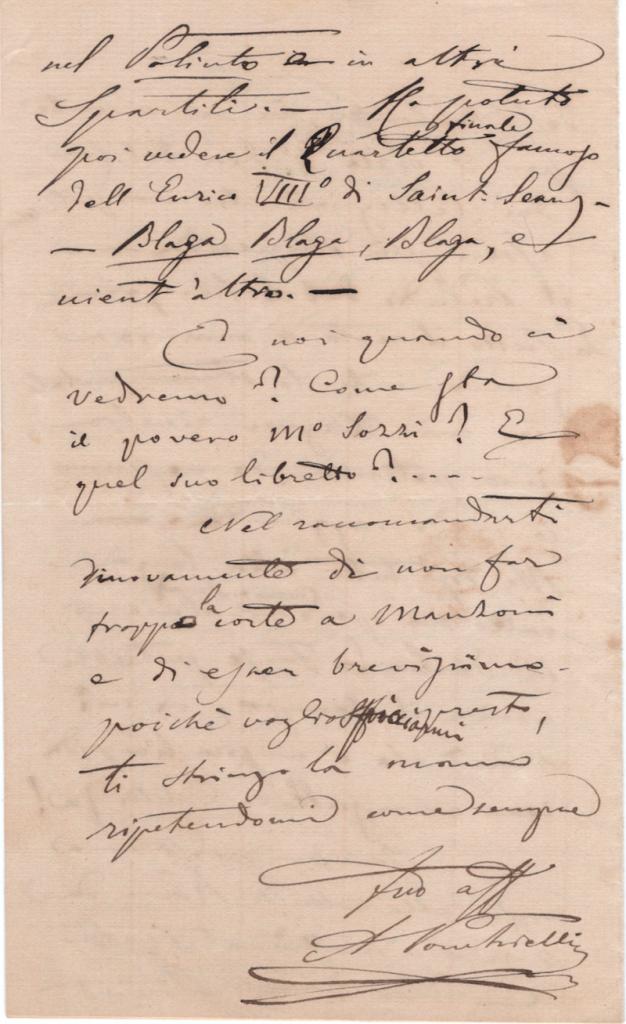 nel Poliuto e in altri
Spartiti. — Ha potuto
poi vedere il Quartetto finale famoso
dell'Enrico VIII° di Saint-Seans -
— Blaga Blaga, Blaga, e
nient'altro. —
E noi quando ci
vedremo? Come sta
il povero M° Sozzi? E
quel suo libretto?....
Nel raccomandarti
nuovamente di non far
troppo la corte a Manzoni
e di esser brevissimo -
poichè voglio spicciarmi presto,
ti stringo la mano
ripetendomi come sempre
tuo aff
A Ponchielli